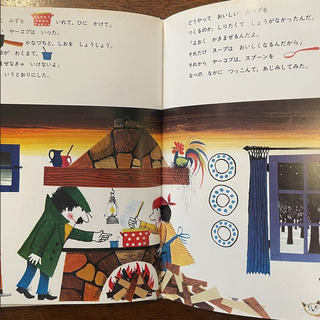 みずを いれて、ひに かけて」
ヤーコプは いった。
かなづちと、しおを しょうしょう。
わくまで、
まぜなきゃ いけないよ」
いうとおりにした。
どうやって おいしい スープを
つくるのか、しりたくて しょうがなかったんだ。
「よおく かきまぜるんだよ。
それだけ スープは おいしくなるんだから」
それから ヤーコプは、スプーンを
なべの なかに つっこんで、あじみしてみた。